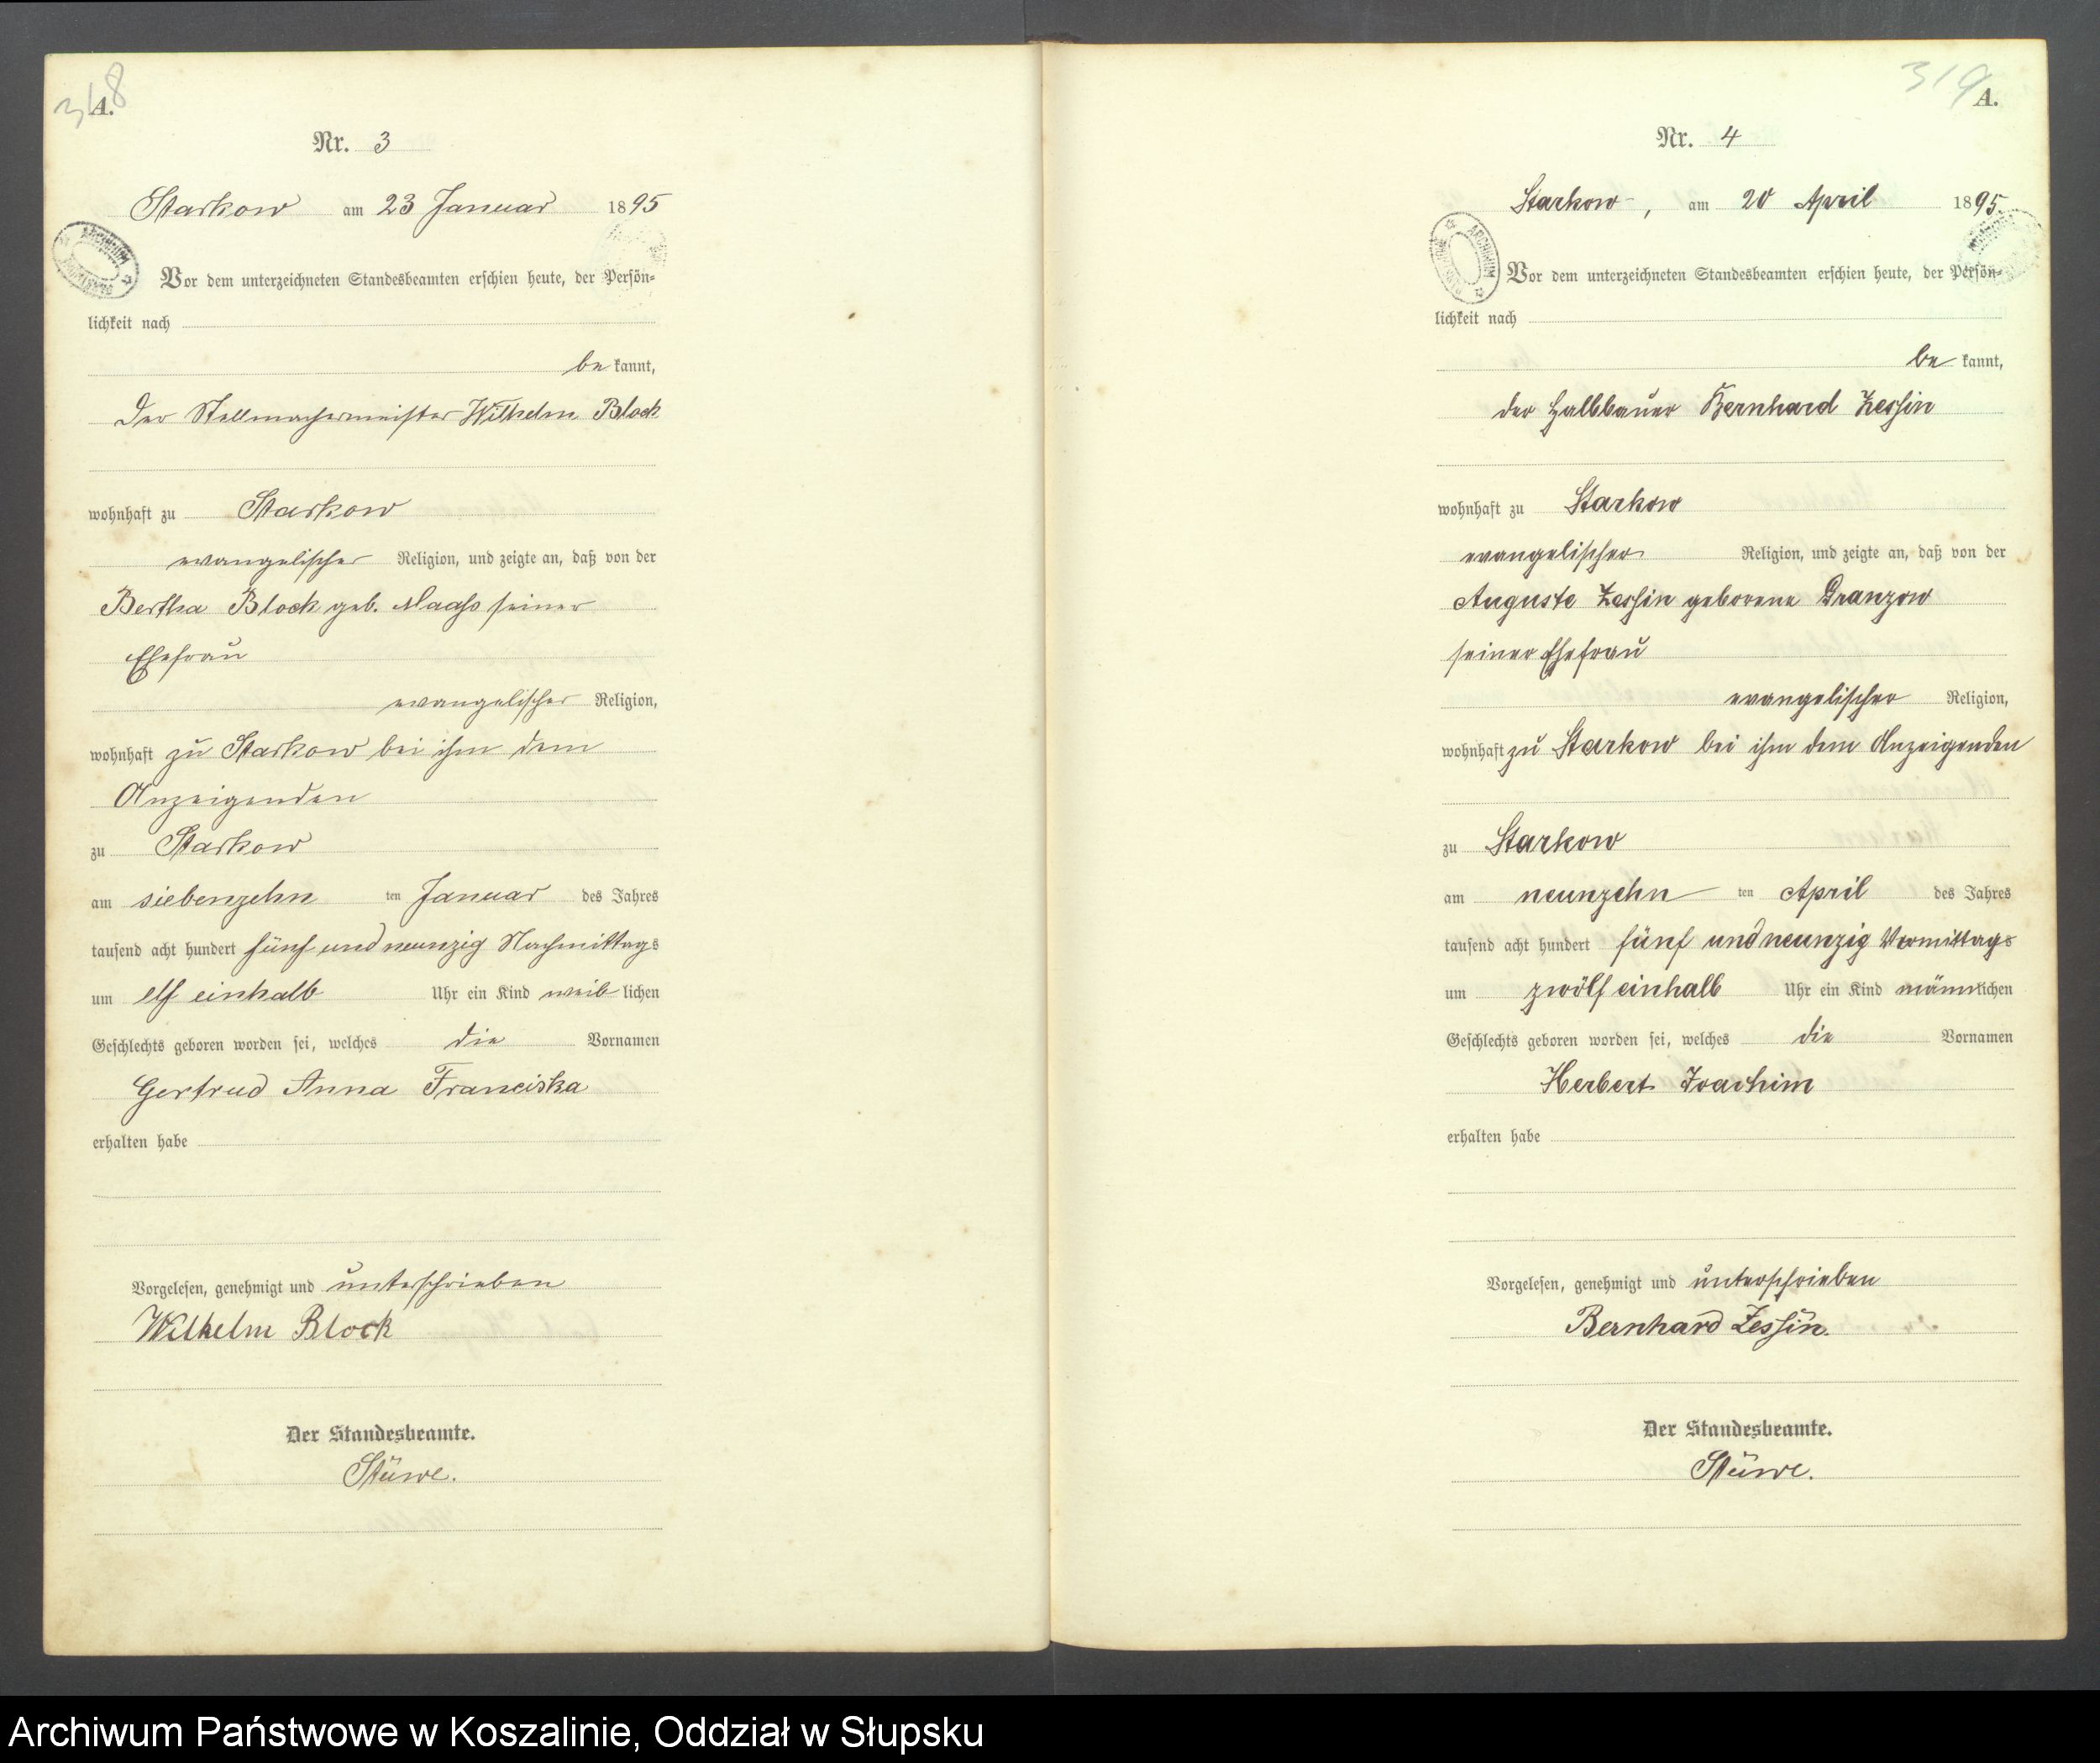 318
A.
Nr. 3
Starkow am 23 Januar 1895
Vor dem unterzeichneten Standesbeamten erschien heute, der Persön-
lichkeit nach
be kannt,
der Stellmachermeister Wilhelm Block
wohnhaft zu Starkow
evangelischer Religion, und zeigte an, daß von der
Bertha Block geb. Maass seiner
Ehefrau
evangelischer Religion,
wohnhaft zu Starkow bei ihm dem
Anzeigenden
zu Starkow
am siebenzehn ten Januar des Jahres
tausend acht hundert fünf und neunzig Nachmittags
um elf einhalb Uhr ein Kind weib lichen
Geschlechts geboren worden sei, welches die Vornamen
Gertrud Anna Franciska
erhalten habe
Vorgelesen, genehmigt und unterschrieben
Wilhelm Block
Der Standesbeamte.
Stüwe.
319
A.
Nr. 4
Starkow, am 20 April 1895.
ARCHIWUM
Vor dem unterzeichneten Standesbeamten erschien heute, der Persön-
lichkeit nach
be kannt,
der Halbbauer Bernhard Zessin
wohnhaft zu Starkow
evangelischer Religion, und zeigte an, daß von der
Auguste Zessin geborene Granzow
seiner Ehefrau
evangelischer Religion,
wohnhaft zu Starkow bei ihm dem Anzeigenden
zu Starkow
am neunzehn ten April des Jahres
tausend acht hundert fünf und neunzig Vormittags
um zwölf einhalb Uhr ein Kind männlichen
Geschlechts geboren worden sei, welches die Vornamen
Herbert Joachim
erhalten habe
Vorgelesen, genehmigt und unterschrieben
Bernhard Zessin.
Der Standesbeamte.
Stüwe.
Archiwum Państwowe w Koszalinie, Oddział w Słupsku